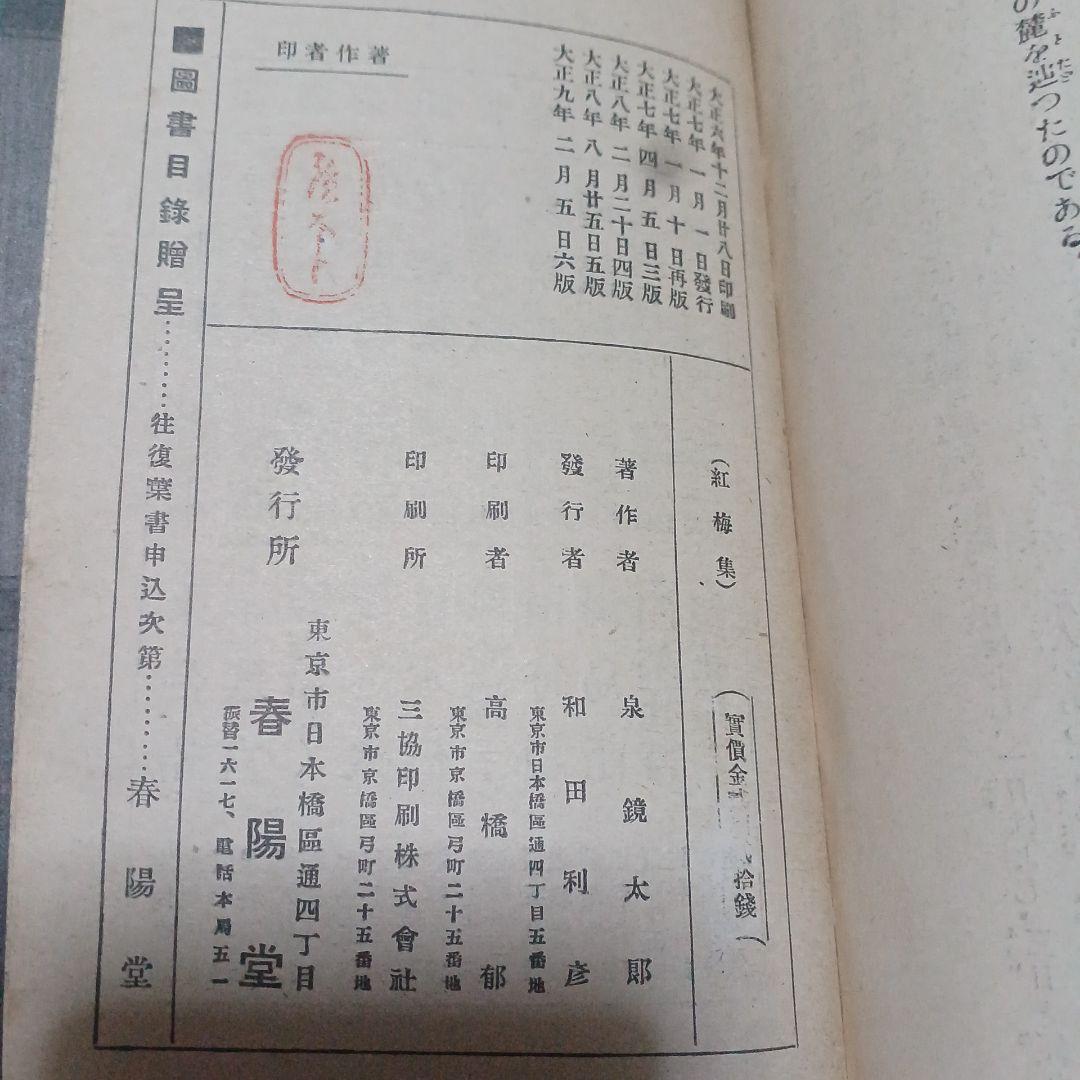 の麓を辿つたのである
大正六年十二月廿八日印刷
大正七年一月一日發行
大正七年一月十日再版
大正七年四月五日三版
大正八年二月二十日四版
大正八年八月廿五日五版
大正九年二月五日六版
著作者印
(紅梅集)
(實價金
拾錢)
著作者 泉鏡太郎
發行者 和田利彦
東京市日本橋區通四丁目五番地
印刷者 高橋郁
東京市京橋區弓町二十五番地
印刷所 三協印刷株式會社
東京市京橋區弓町二十五番地
發行所 東京市日本橋區通四丁目
春陽堂
振替一六一七、電話本局五一
圖書目錄贈呈………往復葉書申込次第………春陽堂